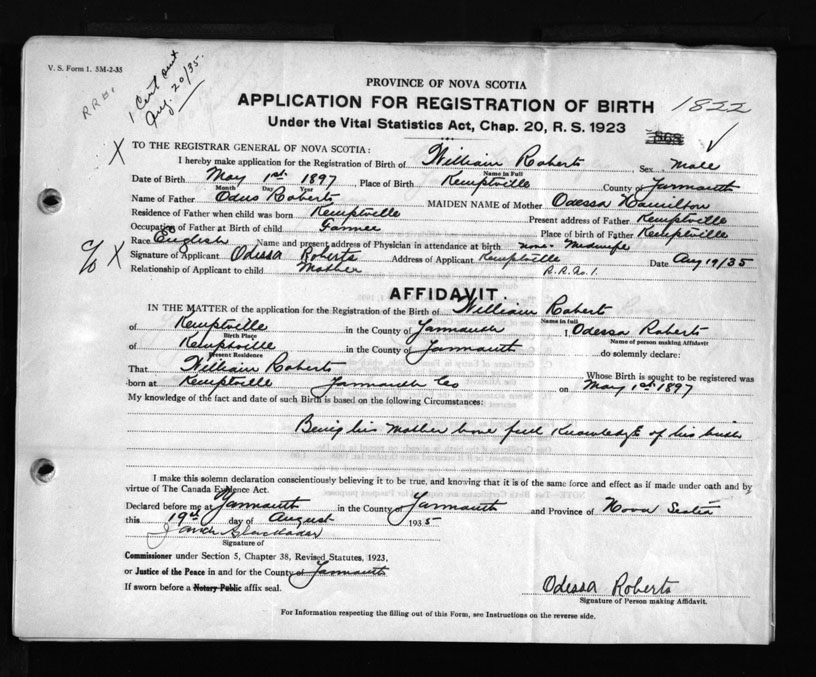 V. S. Form 1. 5M-2-35
R R #1
1 Cert out
Aug. 20/35.
PROVINCE OF NOVA SCOTIA
APPLICATION FOR REGISTRATION OF BIRTH 1822
Under the Vital Statistics Act, Chap. 20, R. S. 1923
X TO THE REGISTRAR GENERAL OF NOVA SCOTIA:
I hereby make application for the Registration of Birth of William Roberts Sex Male
Name in Full
Date of Birth May 1st 1897, Place of Birth Kemptville County of Yarmouth
Month Day Year
Name of Father Odus Roberts MAIDEN NAME of Mother Odessa Hamilton
Residence of Father when child was born Kemptville Present address of Father Kemptville
Occupation of Father at Birth of child Farmer Place of birth of Father Kemptville
Race English Name and present address of Physician in attendance at birth none Midwife
c/o X Signature of Applicant Odessa Roberts Address of Applicant Kemptville Date Aug 19/35
Relationship of Applicant to child Mother R.R. No. 1.
AFFIDAVIT.
IN THE MATTER of the application for the Registration of the Birth of William Roberts
Name in full
of Kemptville in the County of Yarmouth I, Odessa Roberts
Birth Place Name of person making Affidavit
of Kemptville in the County of Yarmouth do solemnly declare:
Present Residence
That William Roberts Whose Birth is sought to be registered was
born at Kemptville Yarmouth Co on May 1st 1897
My knowledge of the fact and date of such Birth is based on the following Circumstances:
Being his Mother have full knowledge of his birth
I make this solemn declaration conscientiously believing it to be true, and knowing that it is of the same force and effect as if made under oath and by
virtue of The Canada Evidence Act.
Declared before me at Yarmouth in the County of Yarmouth and Province of Nova Scotia
this 19th day of August 1935
Signature of
Commissioner under Section 5, Chapter 38, Revised Statutes, 1923,
or Justice of the Peace in and for the County of Yarmouth
If sworn before a Notary Public affix seal.
Odessa Roberts
Signature of Person making Affidavit.
For Information respecting the filling out of this Form, see Instructions on the reverse side.